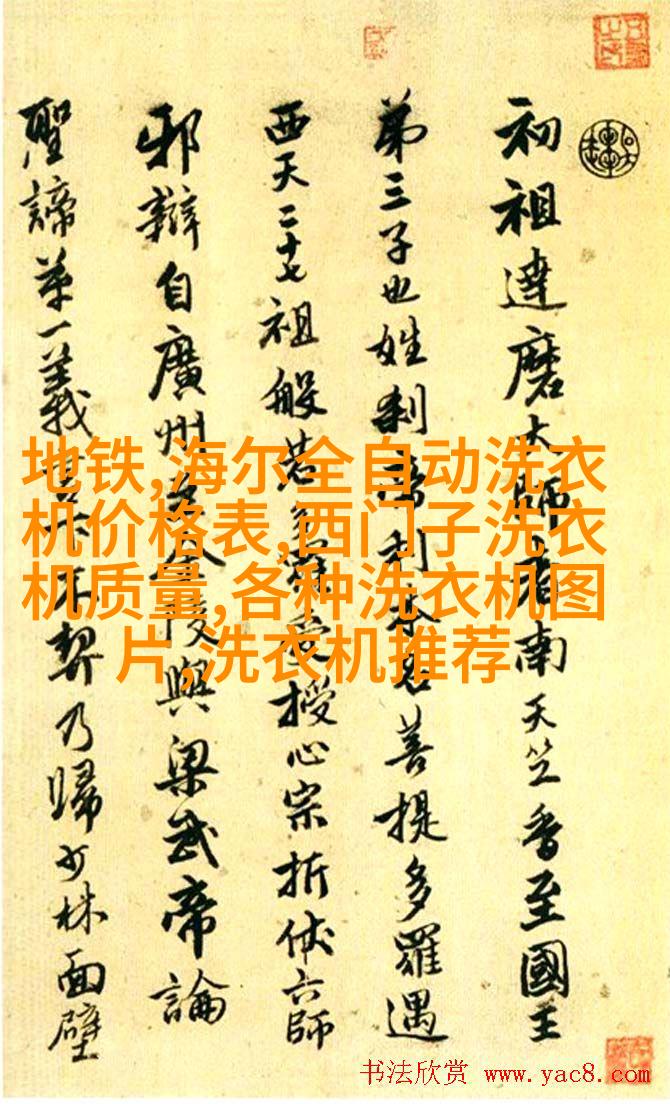 初祖達磨大師者南天竺香至國王
第三子也姓刹帝利本名菩提多羅遇
西天二十七祖般若多羅受授心宗折伏六師
邪辯自廣州
與梁武帝論
聖諦第一義
不契乃歸少林面壁
地铁,海尔全自动洗衣
机价格表,西门子洗衣
机质量,各种洗衣机图
片,洗衣机推荐
书法欣赏 www.yac8.com